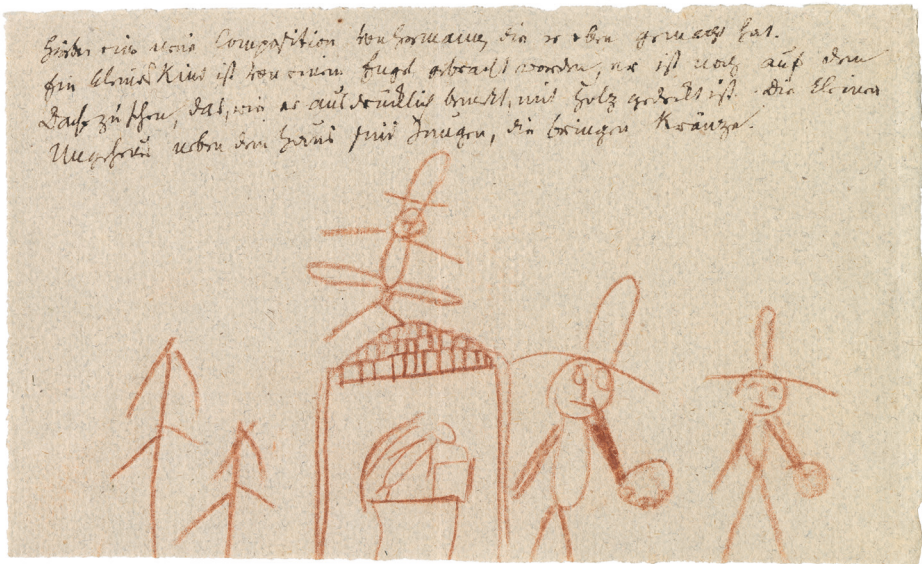 Hier ein neue Composition von Hermann, die er eben gemacht hat.
Ein kleines Kind ist von einem Engel gebracht worden, er ist noch auf dem
Dach zu sehen, das, wie er ausdrücklich bemerkt, mit Holz gedeckt ist. Die kleinen
Ungeheuer neben dem Haus sind Jungen, die bringen Kränze.